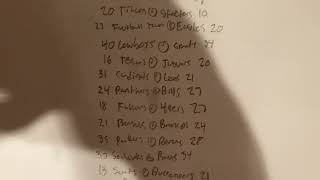 20 Titans @ Steelers 10
27 Football Team @ Eagles 20
40 Cowboys @ Giants 24
16 Texans @ Jaguars 20
31 Cardinals @ 21
24 Panthers @ Bills 27
18 Falcons @ 49ers 27
21 @ Broncos 24
35 Packers @ Ravens 28
Seahawks @ Rams 34
13 Saints @ Buccaneers 21